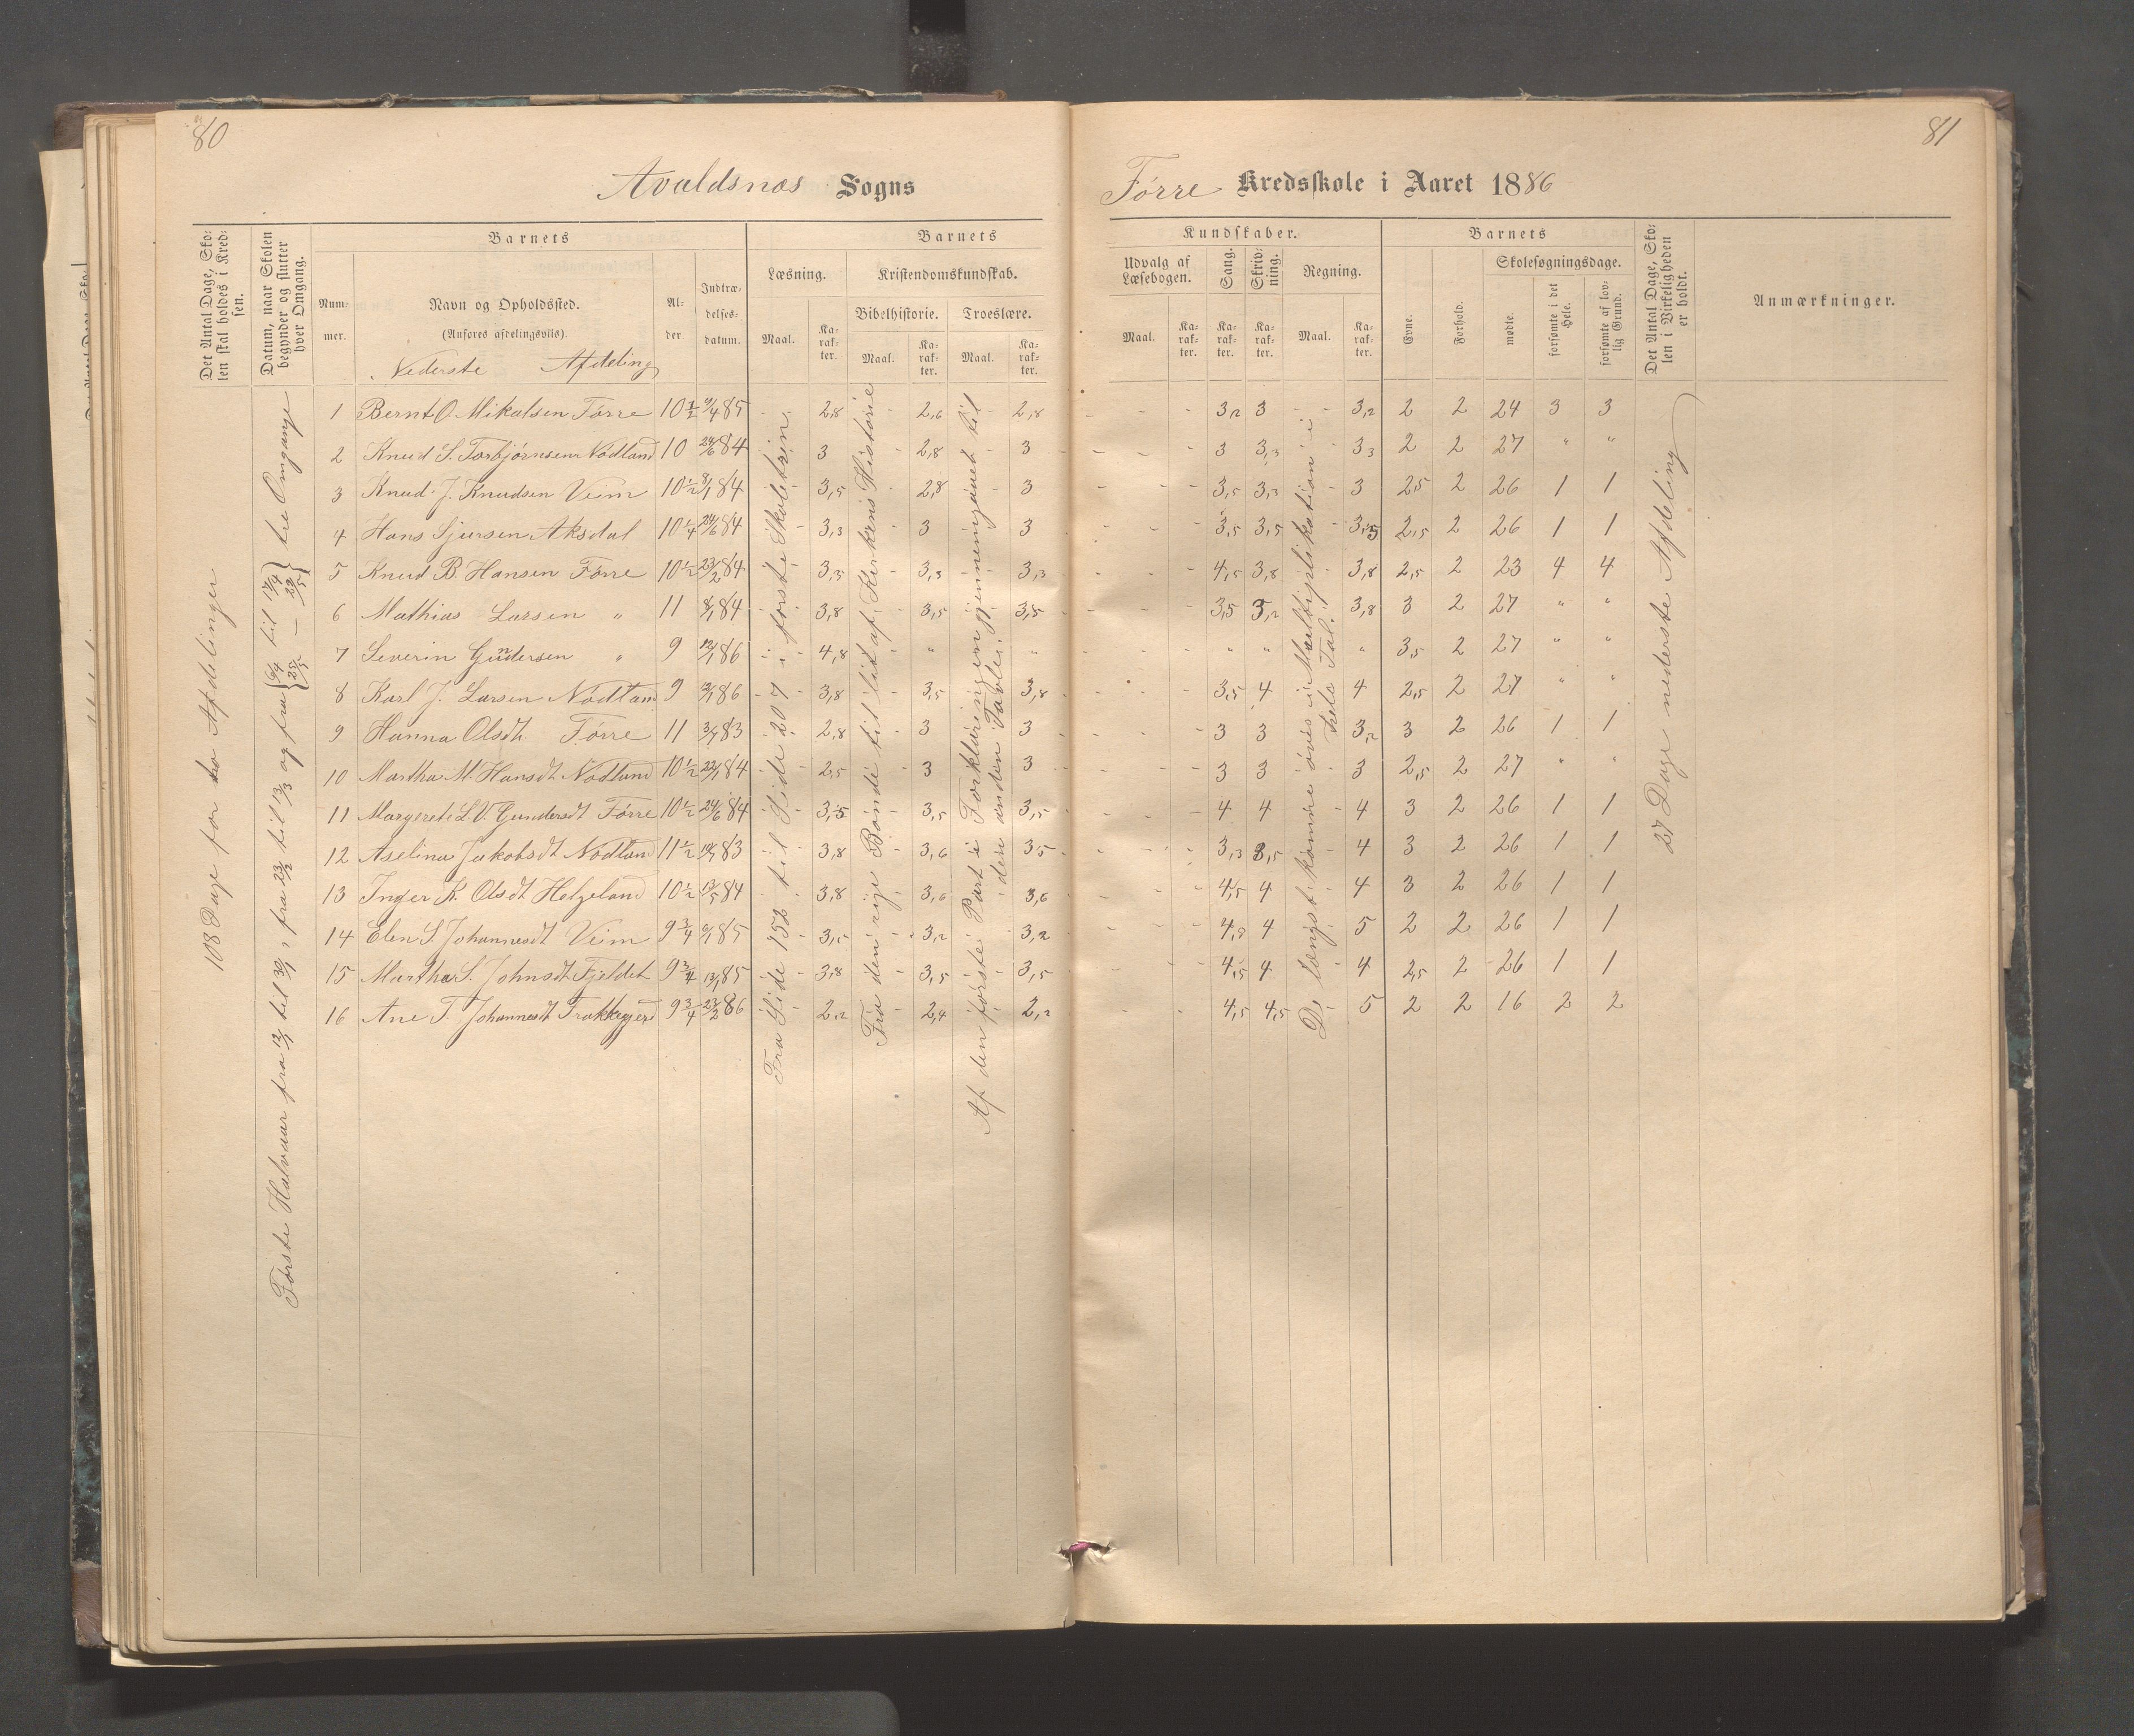 80
Avaldsnæs Sogns
Det Antal Dage, Sko-
len skal holdes i Kred-
sen.
Datum, naar Skolen
begynder og slutter
hver Omgang.
Barnets
Num-
mer.
Navn og Opholdssted.
(Anføres afdelingsviis).
Nederste Afdeling
Al-
der.
Indtræ-
delses-
datum.
Barnets
Læsning.
Maal.
Ka-
rak-
ter.
Kristendomskundskab.
Bibelhistorie.
Maal.
Ka-
rak-
ter.
Troeslære.
Maal.
Ka-
rak-
ter.
108 Dage for to Afdelinger
Første Halvaar fra 12/1 til 30/1, fra 23/2 til 13/3 og fra 6/4 til 17/4 25/5 – 29/5 tre Omgange
1 Bernt O. Mikalsen Førre 10 1/2 9/4 85 2,8 2,6 2,8
2 Knud S. Torbjørnsen Nødland 10 24/6 84 3 2,8 3
3 Knud J. Knudsen Veim 10 1/2 8/1 84 3,5 2,8 3
4 Hans Sjursen Aksdal 10 1/4 24/6 84 3,3 3 3
5 Knud B. Hansen Førre 10 1/2 23/2 84 3,3 3,3 3,3
6 Mathias Larsen " 11 8/1 84 3,8 3,5 3,5
7 Severin Gundersen " 9 12/1 86 4,8 " "
8 Karl J. Larsen Nødland 9 12/1 86 3,8 3,5 3,8
9 Hanna Olsdt. Førre 11 3/7 83 2,8 3 3
10 Martha M. Hansdt Nødland 10 1/2 22/1 84 2,5 3 3
11 Margrete L. V. Gundersdt Førre 10 1/2 24/6 84 3,5 3,5 3,5
12 Aselina Jakobsdt Nødland 11 1/2 83 3,8 3,6 3,5
13 Inger K. Olsdt Helgeland 10 1/2 13/5 84 3,8 3,6 3,6
14 Elen S. Johannesdt Veim 9 3/4 9/1 85 3,2 3,2
15 Martha S. Johnsdt Fjeldet 9 3/4 13/1 85 3,8 3,5 3,5
16 Ane T. Johannesdt 9 3/4 23/2 86 2,2 2,4 2,2
Fra Side 152 til Side 207 i første Skoletrin.
Fra den rige Bonde til lidt af Kirkens Historie
Af den første Part i Forklaringen gjennemgaaet til
den anden Tavle.
81
Førre Kredsskole i Aaret 1886
Kundskaber.
Udvalg af
Læsebogen.
Maal.
Ka-
rak-
ter.
Sang.
Ka-
rak-
ter.
Skriv-
ning.
Ka-
rak-
ter.
Regning.
Maal.
Ka-
rak-
ter.
Barnets
Evne.
Forhold.
Skolesøgningsdage.
mødte.
forsømte i det
Hele.
forsømte af lov-
lig Grund.
Det Antal Dage, Sko-
len i Virkeligheden
er holdt.
Anmærkninger.
3,2 3 3,2 2 2 24 3 3
3 3,3 3,3 2 2 27 " "
3,5 3,3 3 2,5 2 26 1 1
3,5 3,5 3,5 2,5 2 26 1 1
4,5 3,8 3,8 2,5 2 23 4 4
3,5 3,2 3,8 3 2 27 " "
" " " 3,5 2 27 " "
3,5 4 4 2,5 2 27 " "
3 3 3,2 3 2 26 1 1
3 3 3 2,5 2 27 " "
4 4 4 3 2 26 1 1
3,3 3,5 4 3 2 26 1 1
4,5 4 4 3 2 26 1 1
4,8 4 5 2 2 26 1 1
4,5 4 4 2,5 2 26 1 1
4,5 4,5 5 2 2 16 2 2
De længst komne øves i Multiplikation i
hele Tal.
27 Dage nederste Afdeling